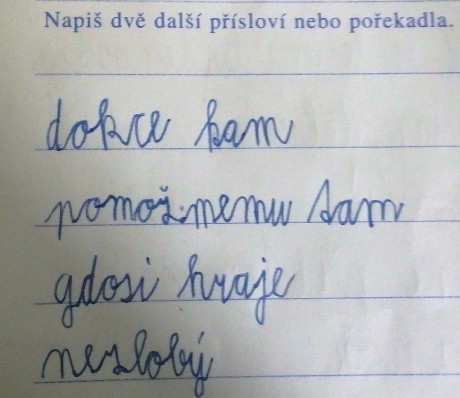 Napiš dvě další přísloví nebo pořekadla.
dokce kam
pomož memu sam
gdosi hraje
neslobý